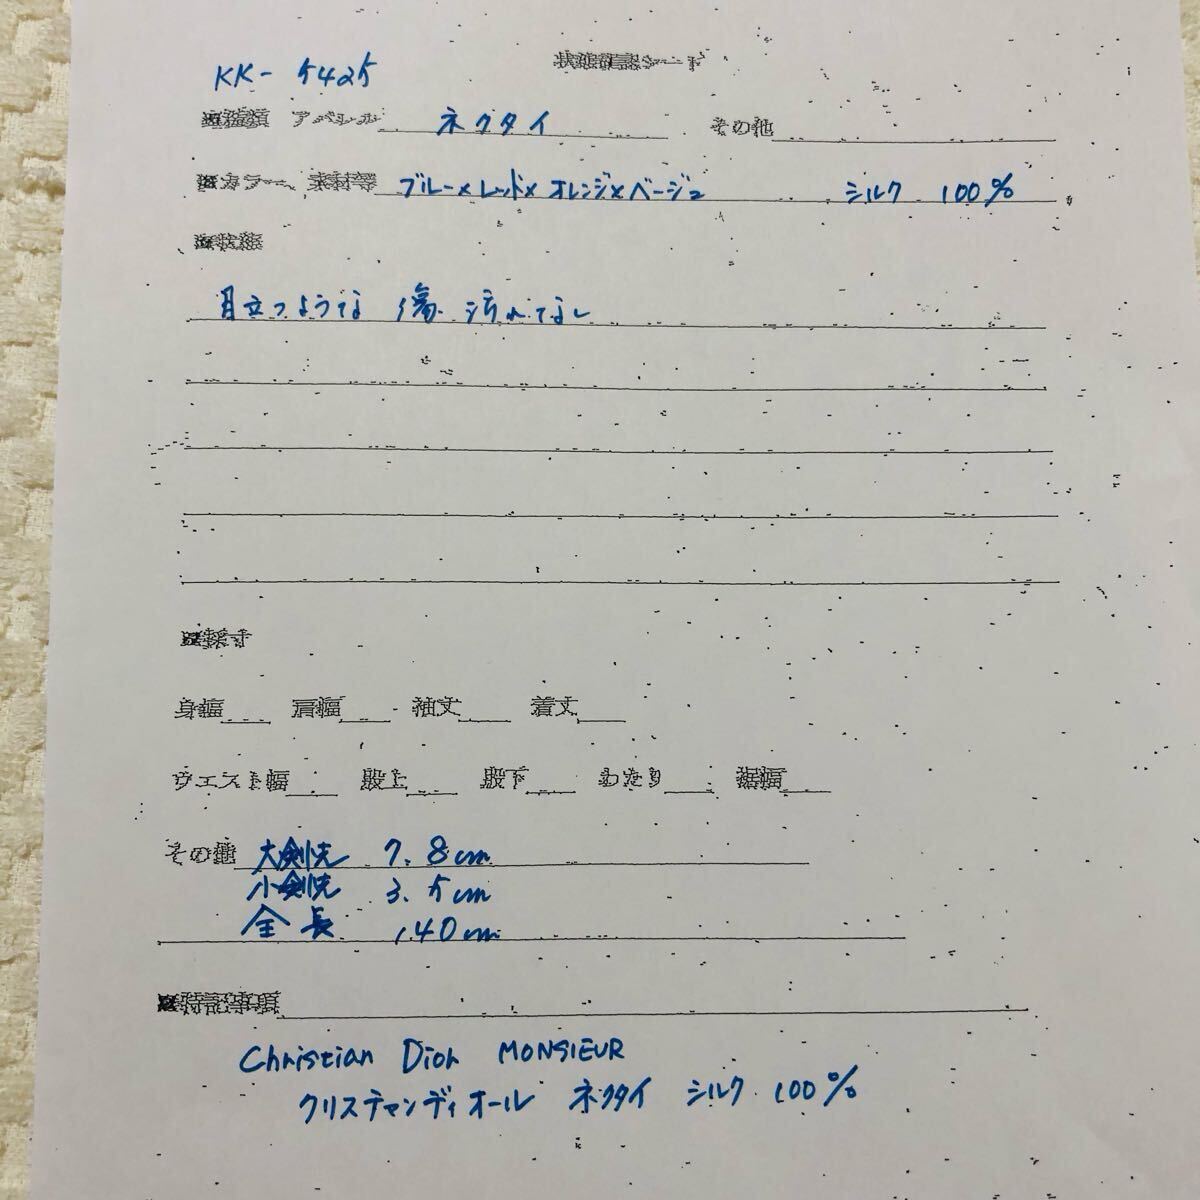 状態確認シート
KK-5425
※種類 アパレル ネクタイ その他
※カラー、素材等 ブルー×レッド×オレンジ×ベージュ シルク 100%
※状態
目立つような 傷 汚れてなし
※採寸
身幅 肩幅 袖丈 着丈
ウエスト幅 股上 股下 わたり 裾幅
その他 大剣先 7.8cm
小剣先 3.5cm
全長 140cm
※特記事項
Christian Dior MONSIEUR
クリスチャンディオール ネクタイ シルク 100%